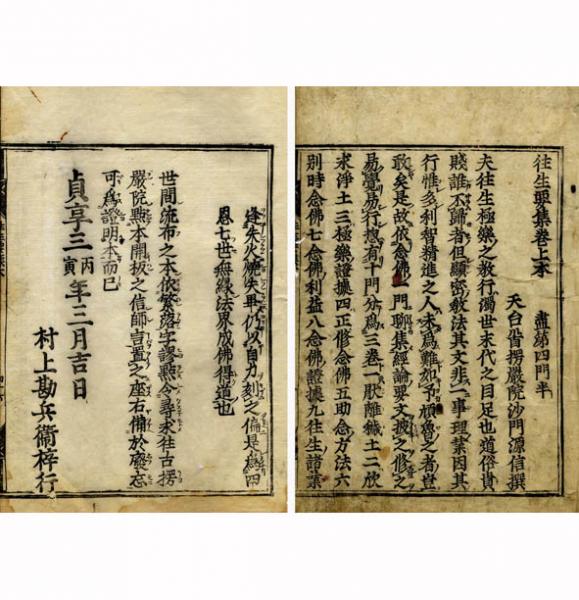 往生要集卷上本
盡第四門半
天台首楞嚴院沙門源信撰
夫往生極樂之教行濁世末代之目足也道俗貴
賤誰不歸者但顯密教法其文非一事理業因其
行惟多利智精進之人未爲難如予頑魯之者豈
敢矣是故依念佛一門聊集經論要文披之修之
易覺易行惣有十門分爲三卷一厭離穢土二欣
求淨土三極樂證據四正修念佛五助念方法六
別時念佛七念佛利益八念佛證據九往生諸業
恩七世無緣法界成佛得道也
世間流布之本依繁落字謬點今尋求往古楞
嚴院點本開板之信師言置之座右備於廢忘
可爲證明本而已
貞享三丙寅年三月吉日
村上勘兵衞梓行